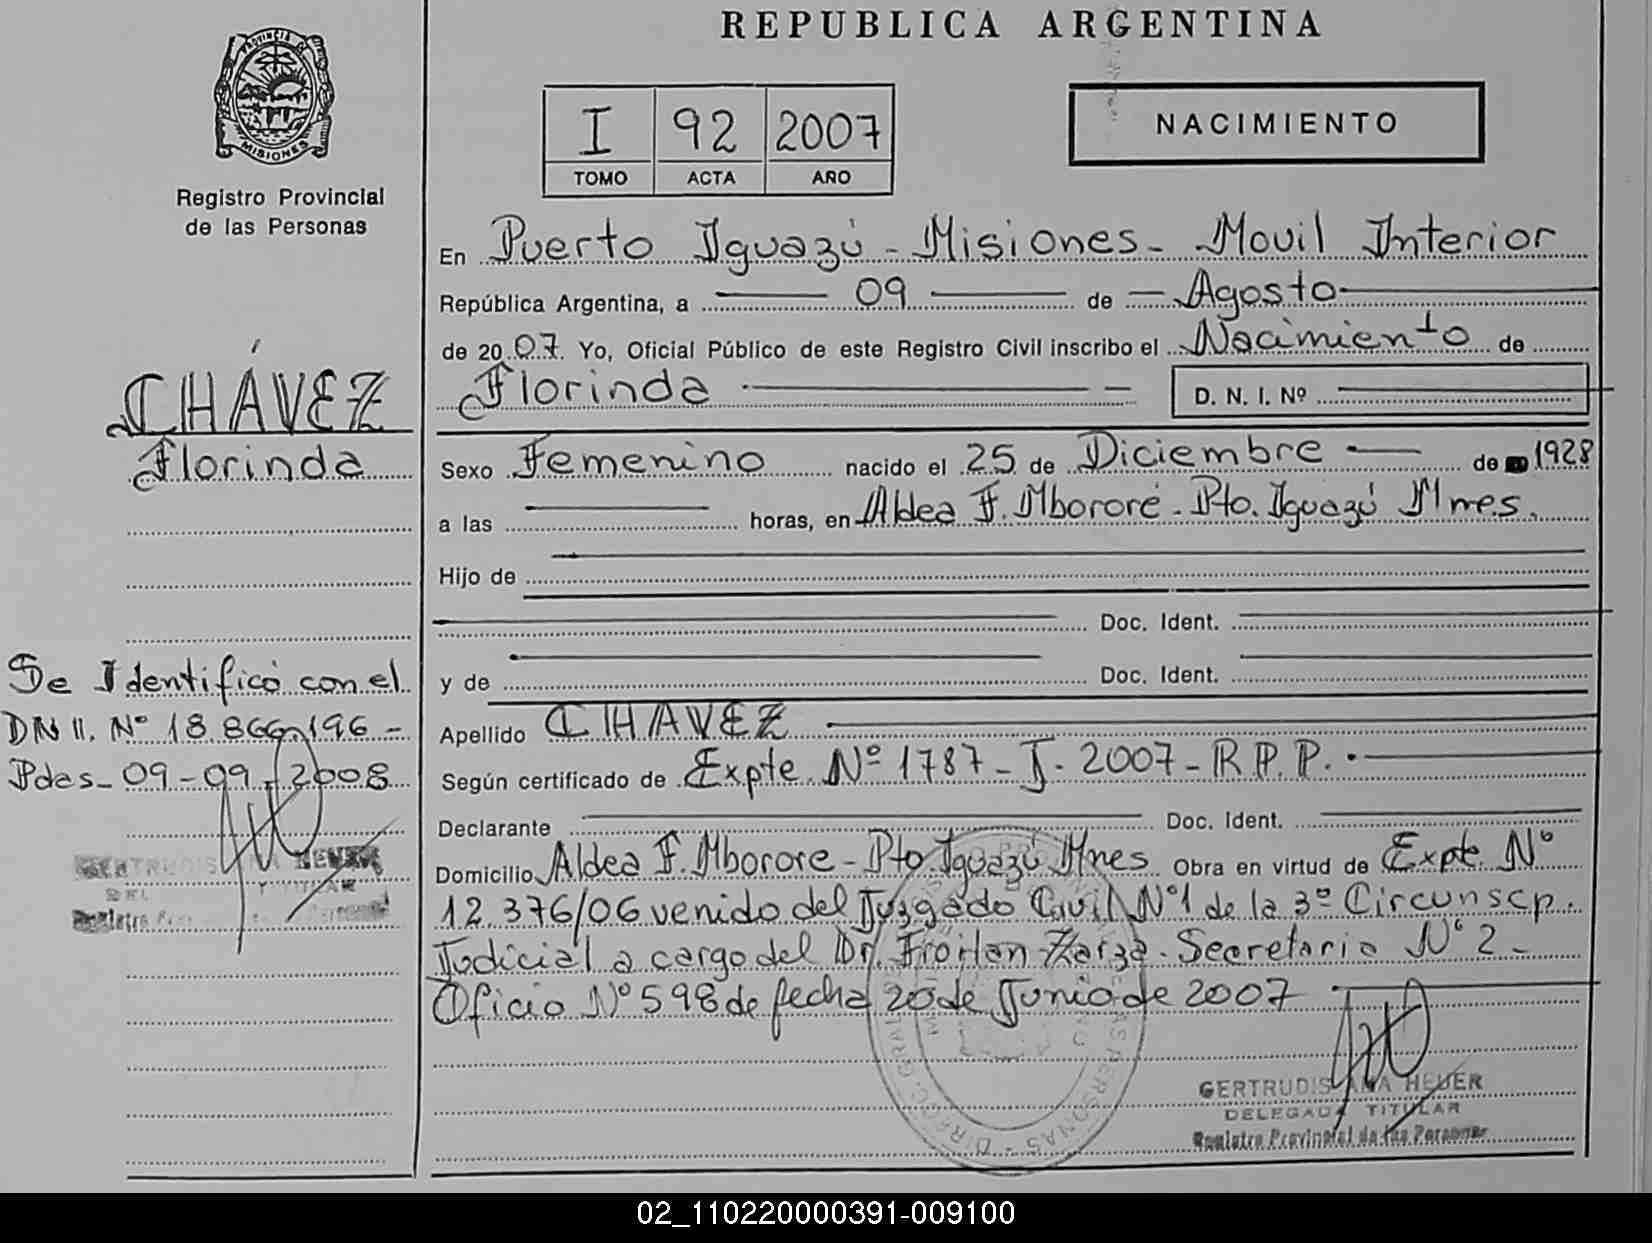 REPUBLICA ARGENTINA
PROVINCIA DE
MISIONES
Registro Provincial
de las Personas
I 92 2007
TOMO ACTA AÑO
NACIMIENTO
En Puerto Iguazú - Misiones - Movil Interior
República Argentina, a 09 de Agosto
de 2007. Yo, Oficial Público de este Registro Civil inscribo el Nacimiento de
Florinda D. N. I. Nº
CHÁVEZ
Florinda
Sexo Femenino nacido el 25 de Diciembre de 1928
a las horas, en Aldea F. Mbororé - Pto. Iguazú Mnes.
Hijo de
Doc. Ident.
y de Doc. Ident.
Apellido CHAVEZ
Según certificado de Expte. Nº 1787 - J - 2007 - R.P.P.
Declarante Doc. Ident.
Domicilio Aldea F. Mborore - Pto Iguazú Mnes Obra en virtud de Expte. Nº
12.376/06 venido del Juzgado Civil Nº1 de la 3º Circunscp.
Judicial a cargo del Dr. Froilan Zarza - Secretaria Nº 2 -
Oficio Nº 598 de fecha 20 de Junio de 2007
Se Identificó con el
DNI. Nº 18.866.196 -
Pdas - 09 - 09 - 2008
GERTRUDIS ANA HEUER
Y TITULAR
Registro
GERTRUDIS ANA HEUER
DELEGADA TITULAR
Registro Provincial de las Personas
02_110220000391-009100